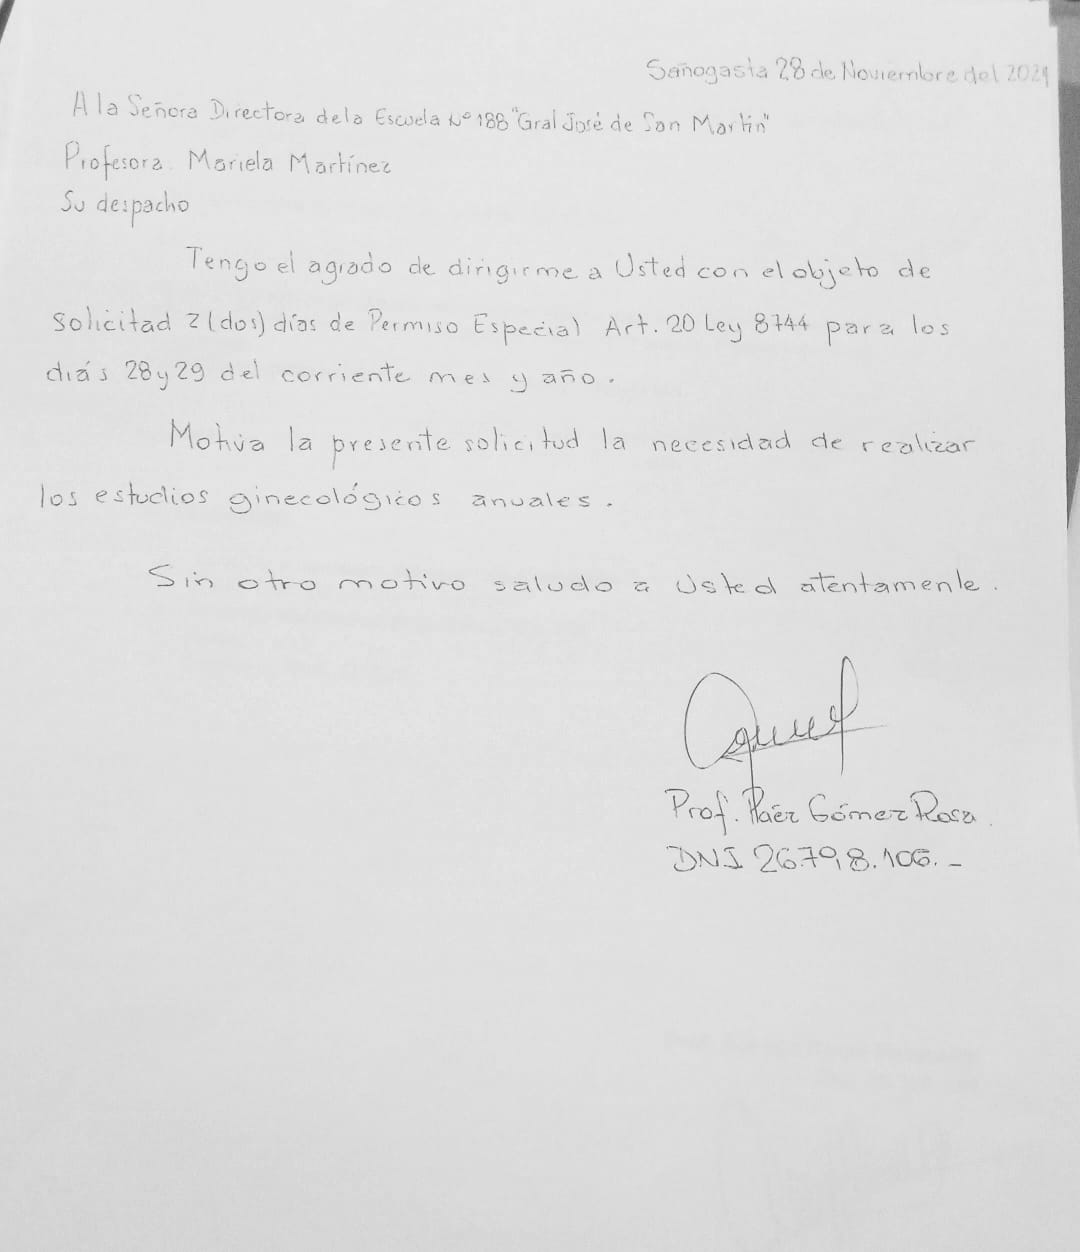 Sañogasta 28 de Noviembre del 2024
A la Señora Directora de la Escuela Nº 188 "Gral José de San Martín"
Profesora Mariela Martínez
Su despacho
Tengo el agrado de dirigirme a Usted con el objeto de
solicitad 2 (dos) días de Permiso Especial Art. 20 Ley 8744 para los
diás 28 y 29 del corriente mes y año.
Motiva la presente solicitud la necesidad de realizar
los estudios ginecológicos anuales.
Sin otro motivo saludo a Usted atentamente.
Prof. Gómez Rosa.
DNI 26.798.106.-